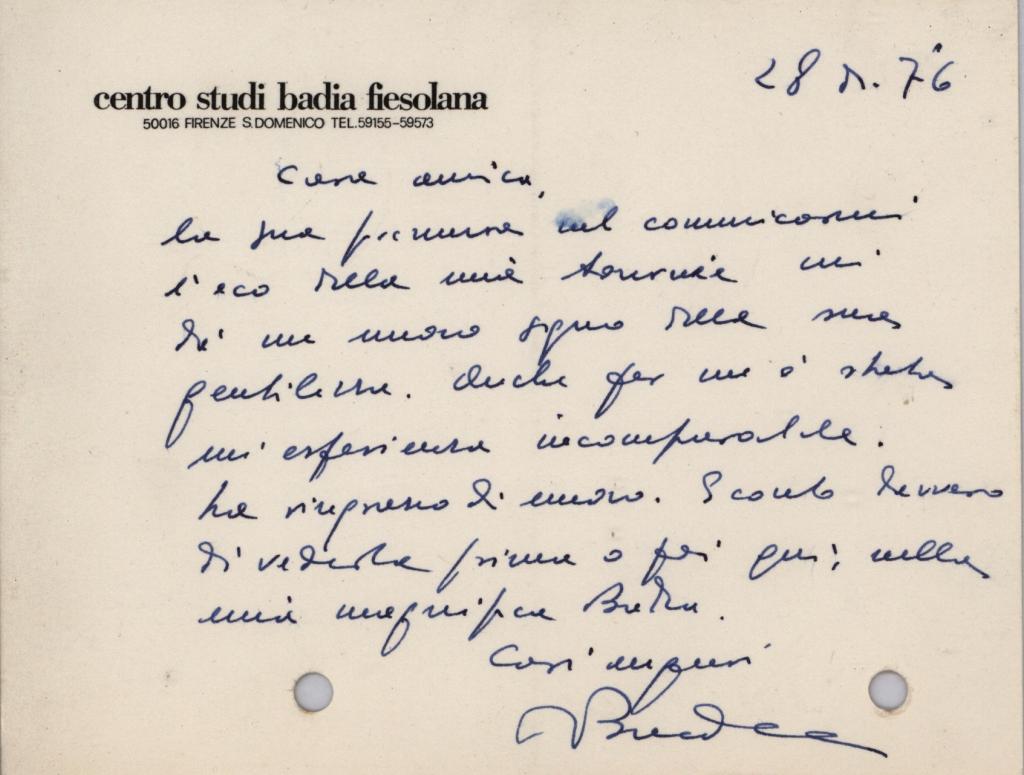 28 VI. 76
centro studi badia fiesolana
50016 FIRENZE S. DOMENICO TEL. 59155-59573
Cara amica,
la sua premura nel comunicarmi
l'eco della mia tournée mi
dà un nuovo segno della sua
gentilezza. Anche per me è stata
un'esperienza incomparabile.
La ringrazio di nuovo. Sconto davvero
di vederla prima o poi qui, nella
mia magnifica Badia.
Cari auguri